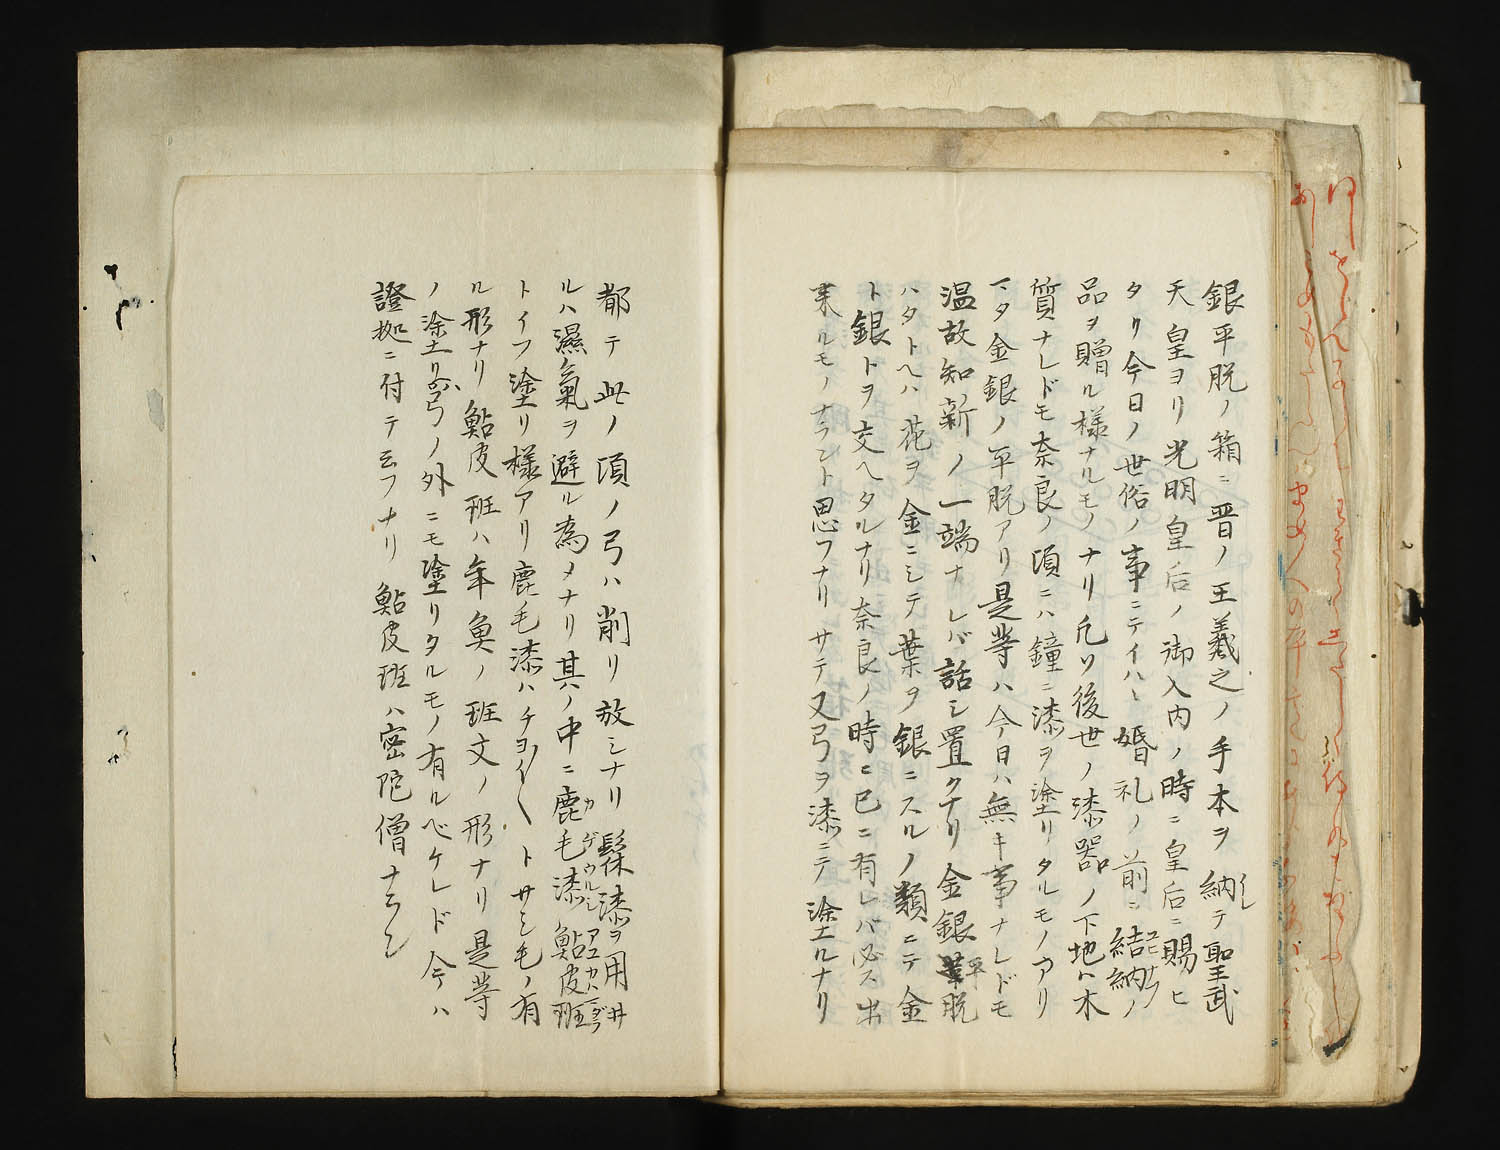 銀平脱ノ箱ニ晋ノ王羲之ノ手本ヲ納レテ聖武
天皇ヨリ光明皇后ノ御入内ノ時ニ皇后ニ賜ヒ
タリ今日ノ世俗ノ事ニテイハヾ婚礼ノ前ニ結納ノ
ユヒナフ
品ヲ贈ル様ナルモノナリ凡ソ後世ノ漆器ノ下地ハ木
質ナレドモ奈良ノ頃ニハ鐘ニ漆ヲ塗リタルモノアリ
マタ金銀ノ平脱アリ是等ハ今日ハ無キ事ナレドモ
温故知新ノ一端ナレバ話シ置クナリ金銀平脱
ハタトヘハ花ヲ金ニシテ葉ヲ銀ニスルノ類ニテ金
ト銀トヲ交ヘタルナリ奈良ノ時ニ已ニ有レバ必ス出
来ルモノナラント思フナリサテ又弓ヲ漆ニテ塗ルナリ
都テ此ノ頃ノ弓ハ削リ放シナリ髹漆ヲ用井
ルハ濕氣ヲ避ル為メナリ其ノ中ニ鹿毛漆鮎皮斑
カゲウルシ アユカハマダラ
トイフ塗リ様アリ鹿毛漆ハチヨイ〳〵トサシ毛ノ有
ル形ナリ鮎皮斑ハ年魚ノ斑文ノ形ナリ是等
ノ塗リハ弓ノ外ニモ塗リタルモノ有ルベケレド今ハ
證拠ニ付テ云フナリ鮎皮斑ハ密陀僧ナラン